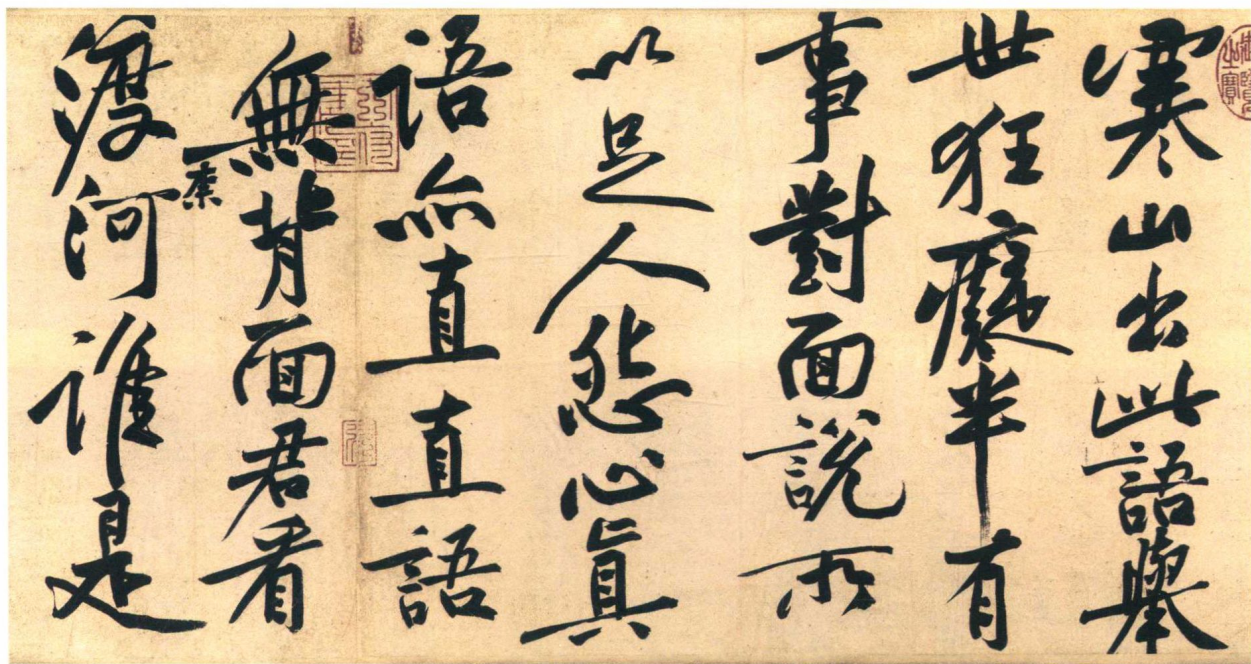 寒山出此語舉
世狂癡半有
事對面說所
以足人怨心真
語亦直直語
無背面君看
柰
渡河誰是